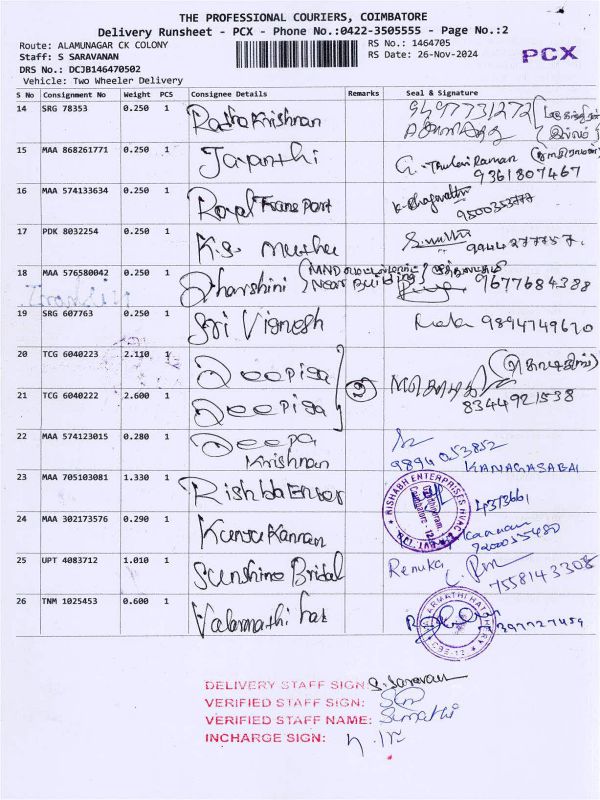 THE PROFESSIONAL COURIERS, COIMBATORE
Delivery Runsheet - PCX - Phone No.:0422-3505555 - Page No.:2
Route: ALAMUNAGAR CK COLONY
Staff: S SARAVANAN
DRS No.: DCJB146470502
Vehicle: Two Wheeler Delivery
RS No.: 1464705
RS Date: 26-Nov-2024
PCX
S No Consignment No Weight PCS Consignee Details Remarks Seal & Signature
14 SRG 78353 0.250 1 Radha Krishnan 9497731272
15 MAA 868261771 0.250 1 Jayanthi G. Thulasi Raman
9361807467
16 MAA 574133634 0.250 1 Royal Transport K. Bhagavathi
9500353777
17 PDK 8032254 0.250 1 K.S. Muthu 9944277757.
18 MAA 576580042 0.250 1 Dharshini Near Building 9677684388
19 SRG 607763 0.250 1 Sri Vignesh 9894749670
20 TCG 6040223 2.110 1 Deepiga
21 TCG 6040222 2.600 1 Deepiga 2 8344921538
22 MAA 574123015 0.280 1 Deepa Krishnan 9894053852
KANAGASABAI
23 MAA 705103081 1.330 1 Rishba Enter RISHABH ENTERPRISES HVAC
24 MAA 302173576 0.290 1 Kannan
25 UPT 4083712 1.010 1 Sunshine Bridal Renuka
7558143308
26 TNM 1025453 0.600 1 Valarmathi hat
DELIVERY STAFF SIGN: S. Saravanan
VERIFIED STAFF SIGN:
VERIFIED STAFF NAME: Sumathi
INCHARGE SIGN: